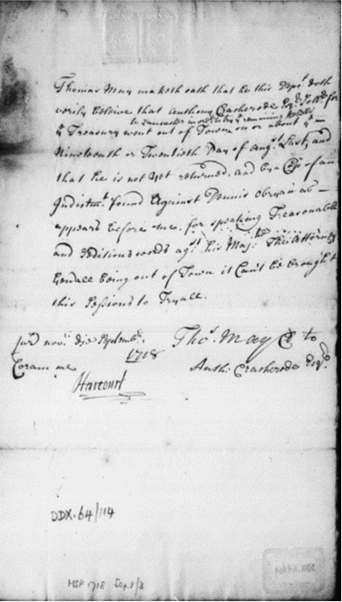 Thomas May maketh oath that he this Depot. doth
verily believe that Anthony Cracherode Esqr. Sollr. for
ye Treasury went out of Town on or about ye
Nineteenth or Twentieth Day of Augt. Last, and
that he is not yet returned. and by a of an
Indictmt. found against Dennis
appeard before me. for speaking Treasonable
and Seditious words agt. his Majty. The Attorney
Generall being out of Town it Can't be brought
this Sessions to Tryall.
Jurd. novo. die Septembr.
1718
Coram me
Harcourt
Tho. May C to
Anth: Cracherode Esqr.
DDX.64/114
MSP 1718 Sept/3